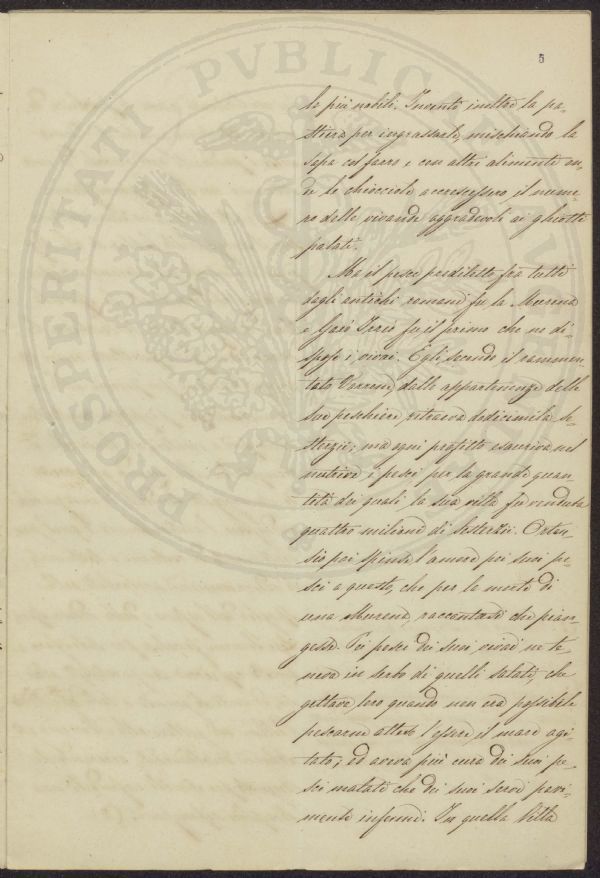 5
la più nobile. Inventò inoltre la pa-
stura per ingrassarle, mischiando la
sapa col farro e con altri alimenti on-
de le chiocciole accrescessero il nume-
ro delle vivande aggradevoli ai ghiotti
palati.
Ma il pesce prediletto fra tutti
dagli antichi romani fu la Murena
e Gajo Irrio fu il primo che ne di-
spose i vivai. Egli, secondo il rammen-
tato Varrone, dalle appartenenze delle
sue peschiere, ritraeva dodicimila se-
sterzii; ma ogni profitto esauriva nel
nutrire i pesci per la grande quan-
tità dei quali la sua villa fu venduta
quattro milioni di sesterzii. Orten-
sio poi spinse l'amore pei suoi pe-
sci a questo, che per la morte di
una Murena, raccontasi che pian-
gesse. Pei pesci dei suoi vivai ne te-
neva in serbo di quelli salati che
gettava loro quando non era possibile
pescarne atteso l'essere il mare agi-
tato; ed aveva più cura dei suoi pe-
sci malati che dei suoi servi pari-
mente infermi. In quella Villa
PROSPERITATI PVBLICAE